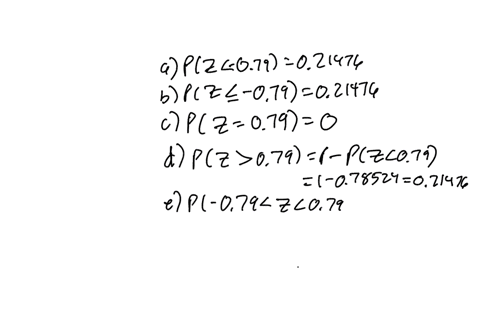 a) P(Z<0.79) = 0.21476
b) P(Z≤-0.79) = 0.21476
c) P(Z=0.79) = 0
d) P(Z>0.79) = 1-P(Z<0.79)
= 1-0.78524=0.21476
e) P(-0.79<Z<0.79